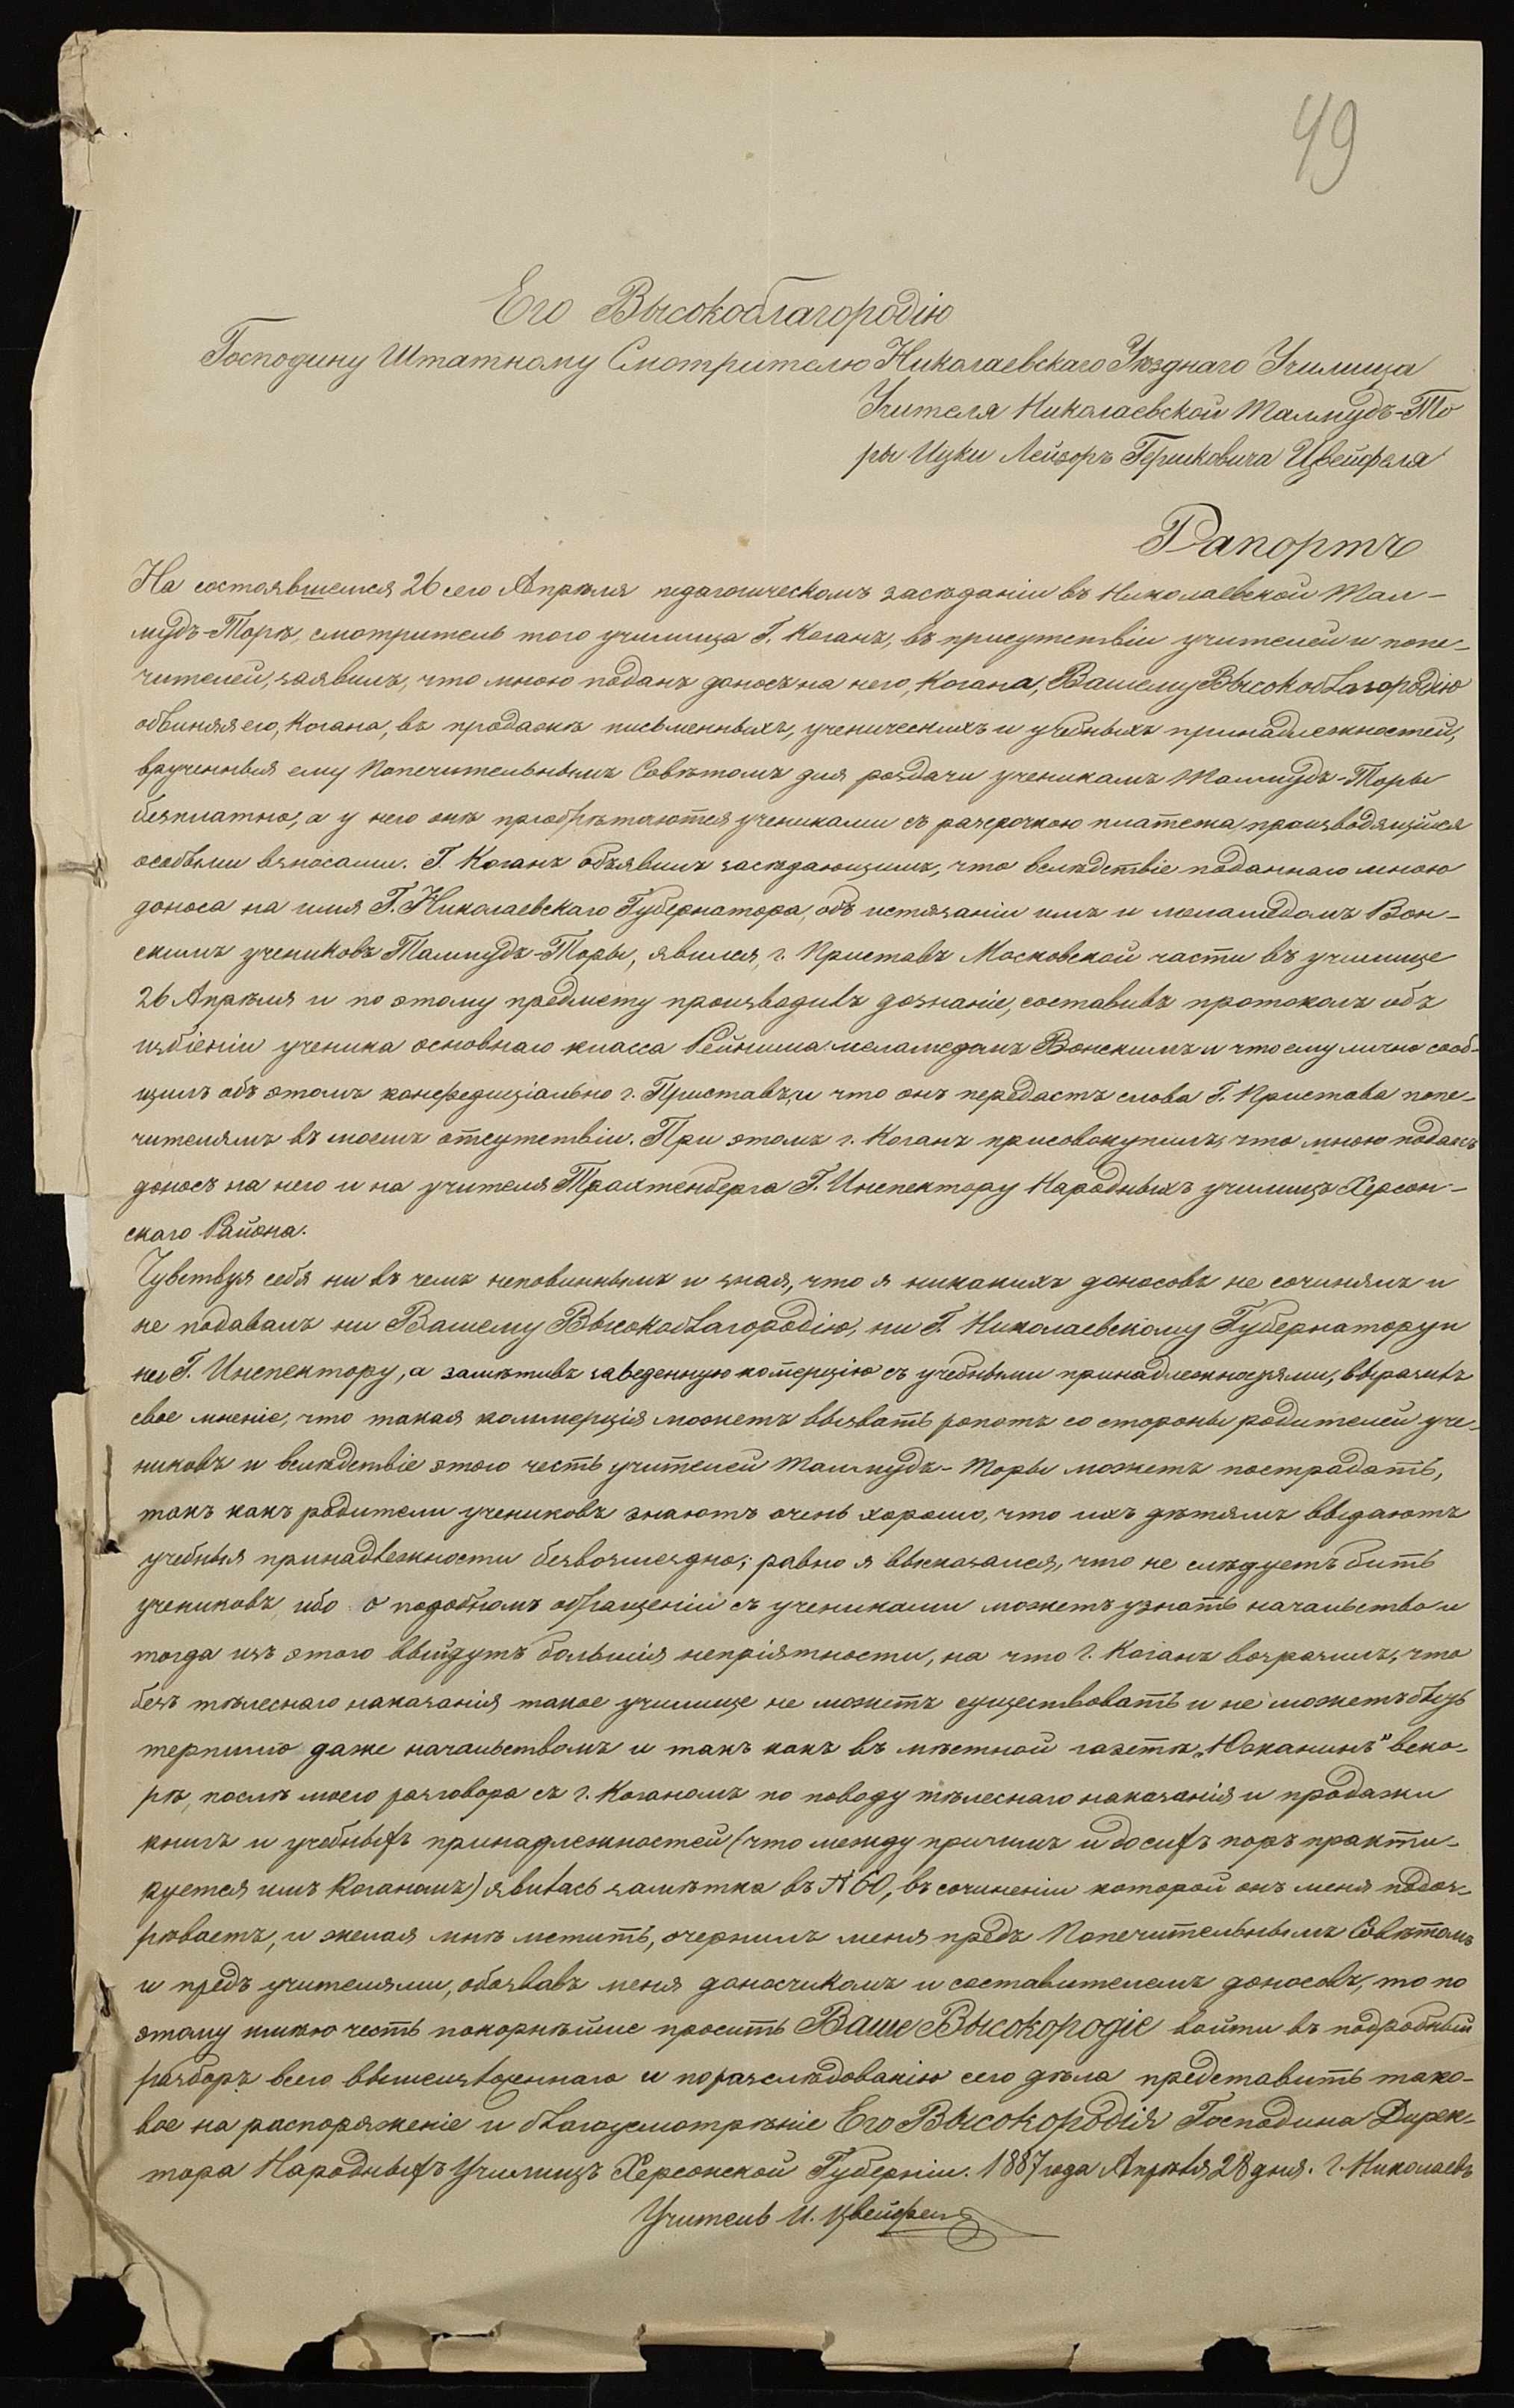 49
Его Высокоблагородію
Господину Штатному Смотрителю Николаевскаго Уѣзднаго Училища
Учителя Николаевской Талмудъ-То
ры Ицки Лейзоръ Гершковича Цвейфеля
Рапортъ
На состоявшемся 26 сего Апрѣля педагогическомъ засѣданіи въ Николаевской Тал-
мудъ-Торѣ, смотритель того училища Г. Коганъ, въ присутствіи учителей и попе-
чителей, заявилъ, что мною поданъ доносъ на него, Когана, Вашему Высокоблагородію
обвиняя его, Когана, въ продажѣ письменныхъ, ученическихъ и учебныхъ принадлежностей,
врученныя ему Попечительнымъ Совѣтомъ для роздачи ученикамъ Талмудъ-Торы
безплатно, а у него онѣ пріобрѣтаются учениками съ разсрочкою платежа производящійся
особыми взносами. Г. Коганъ объявилъ засѣдающимъ, что вслѣдствіе поданнаго мною
доноса на имя Г. Николаевскаго Губернатора, объ истязаніи имъ и меламедомъ Вон-
скимъ учениковъ Талмудъ-Торы, явился г. Приставъ Московской части въ училище
26 Апрѣля и по этому предмету производивъ дознаніе, составивъ протоколъ объ
избіеніи ученика основнаго класса Рейниша меламедомъ Вонскимъ и что ему лично сооб-
щилъ объ этомъ конфедиціально г. Приставъ, и что онъ передастъ слова Г. Пристава попе-
чителямъ въ моемъ отсутствіи. При этомъ г. Коганъ присовокупилъ, что мною поданъ
доносъ на него и на учителя Трахтенберга Г. Инспектору Народныхъ училищъ Херсон-
скаго Района.
Чувствуя себя ни въ чемъ неповиннымъ и зная, что я никакихъ доносовъ не сочинялъ и
не подавалъ ни Вашему Высокоблагородію, ни Г. Николаевскому Губернатору и
ни Г. Инспектору, а замѣтивъ заведенную комерцію съ учебными принадлежностями, выразивъ
свое мненіе, что такая коммерція можетъ вызвать ропотъ со стороны родителей уче-
никовъ и вслѣдствіе этого честь учителей Талмудъ-Торы можетъ пострадать,
такъ какъ родители учениковъ знаютъ очень хорошо, что ихъ дѣтямъ выдаютъ
учебныя принадлежности безвозмездно; равно я высказался, что не слѣдуетъ бить
учениковъ ибо о подобномъ обращеніи съ учениками можетъ узнать начальство и
тогда изъ этого выйдутъ большія непріятности, на что г. Коганъ возразилъ, что
безъ тѣлеснаго наказанія такое училище не можетъ существовать и не можетъ быть
терпимо даже начальствомъ и такъ какъ въ мѣстной газетѣ „Южанинъ" вско-
рѣ, послѣ моего разговора съ г. Коганомъ по поводу тѣлеснаго наказанія и продажи
книгъ и учебныхъ принадлежностей (что между прочимъ и до сихъ поръ практи-
куется имъ Коганомъ) явилась замѣтка въ № 60, въ сочиненіи которой онъ меня подоз-
рѣваетъ, и желая мнѣ мстить, очернилъ меня предъ Попечительнымъ Совѣтомъ
и предъ учителями, обозвавъ меня доносчикомъ и составителемъ доносовъ, то по
этому имѣю честь покорнѣйше просить Ваше Высокородіе войти въ подробный
разборъ всего вышеизложеннаго и по разслѣдованію сего дѣла представить тако-
вое на распоряженіе и благоусмотрѣніе Его Высокородія Господина Дирек-
тора Народныхъ Училищъ Херсонской Губерніи. 1887 года Апрѣля 28 дня. Г. Николаевъ
Учитель И. Цвейфель